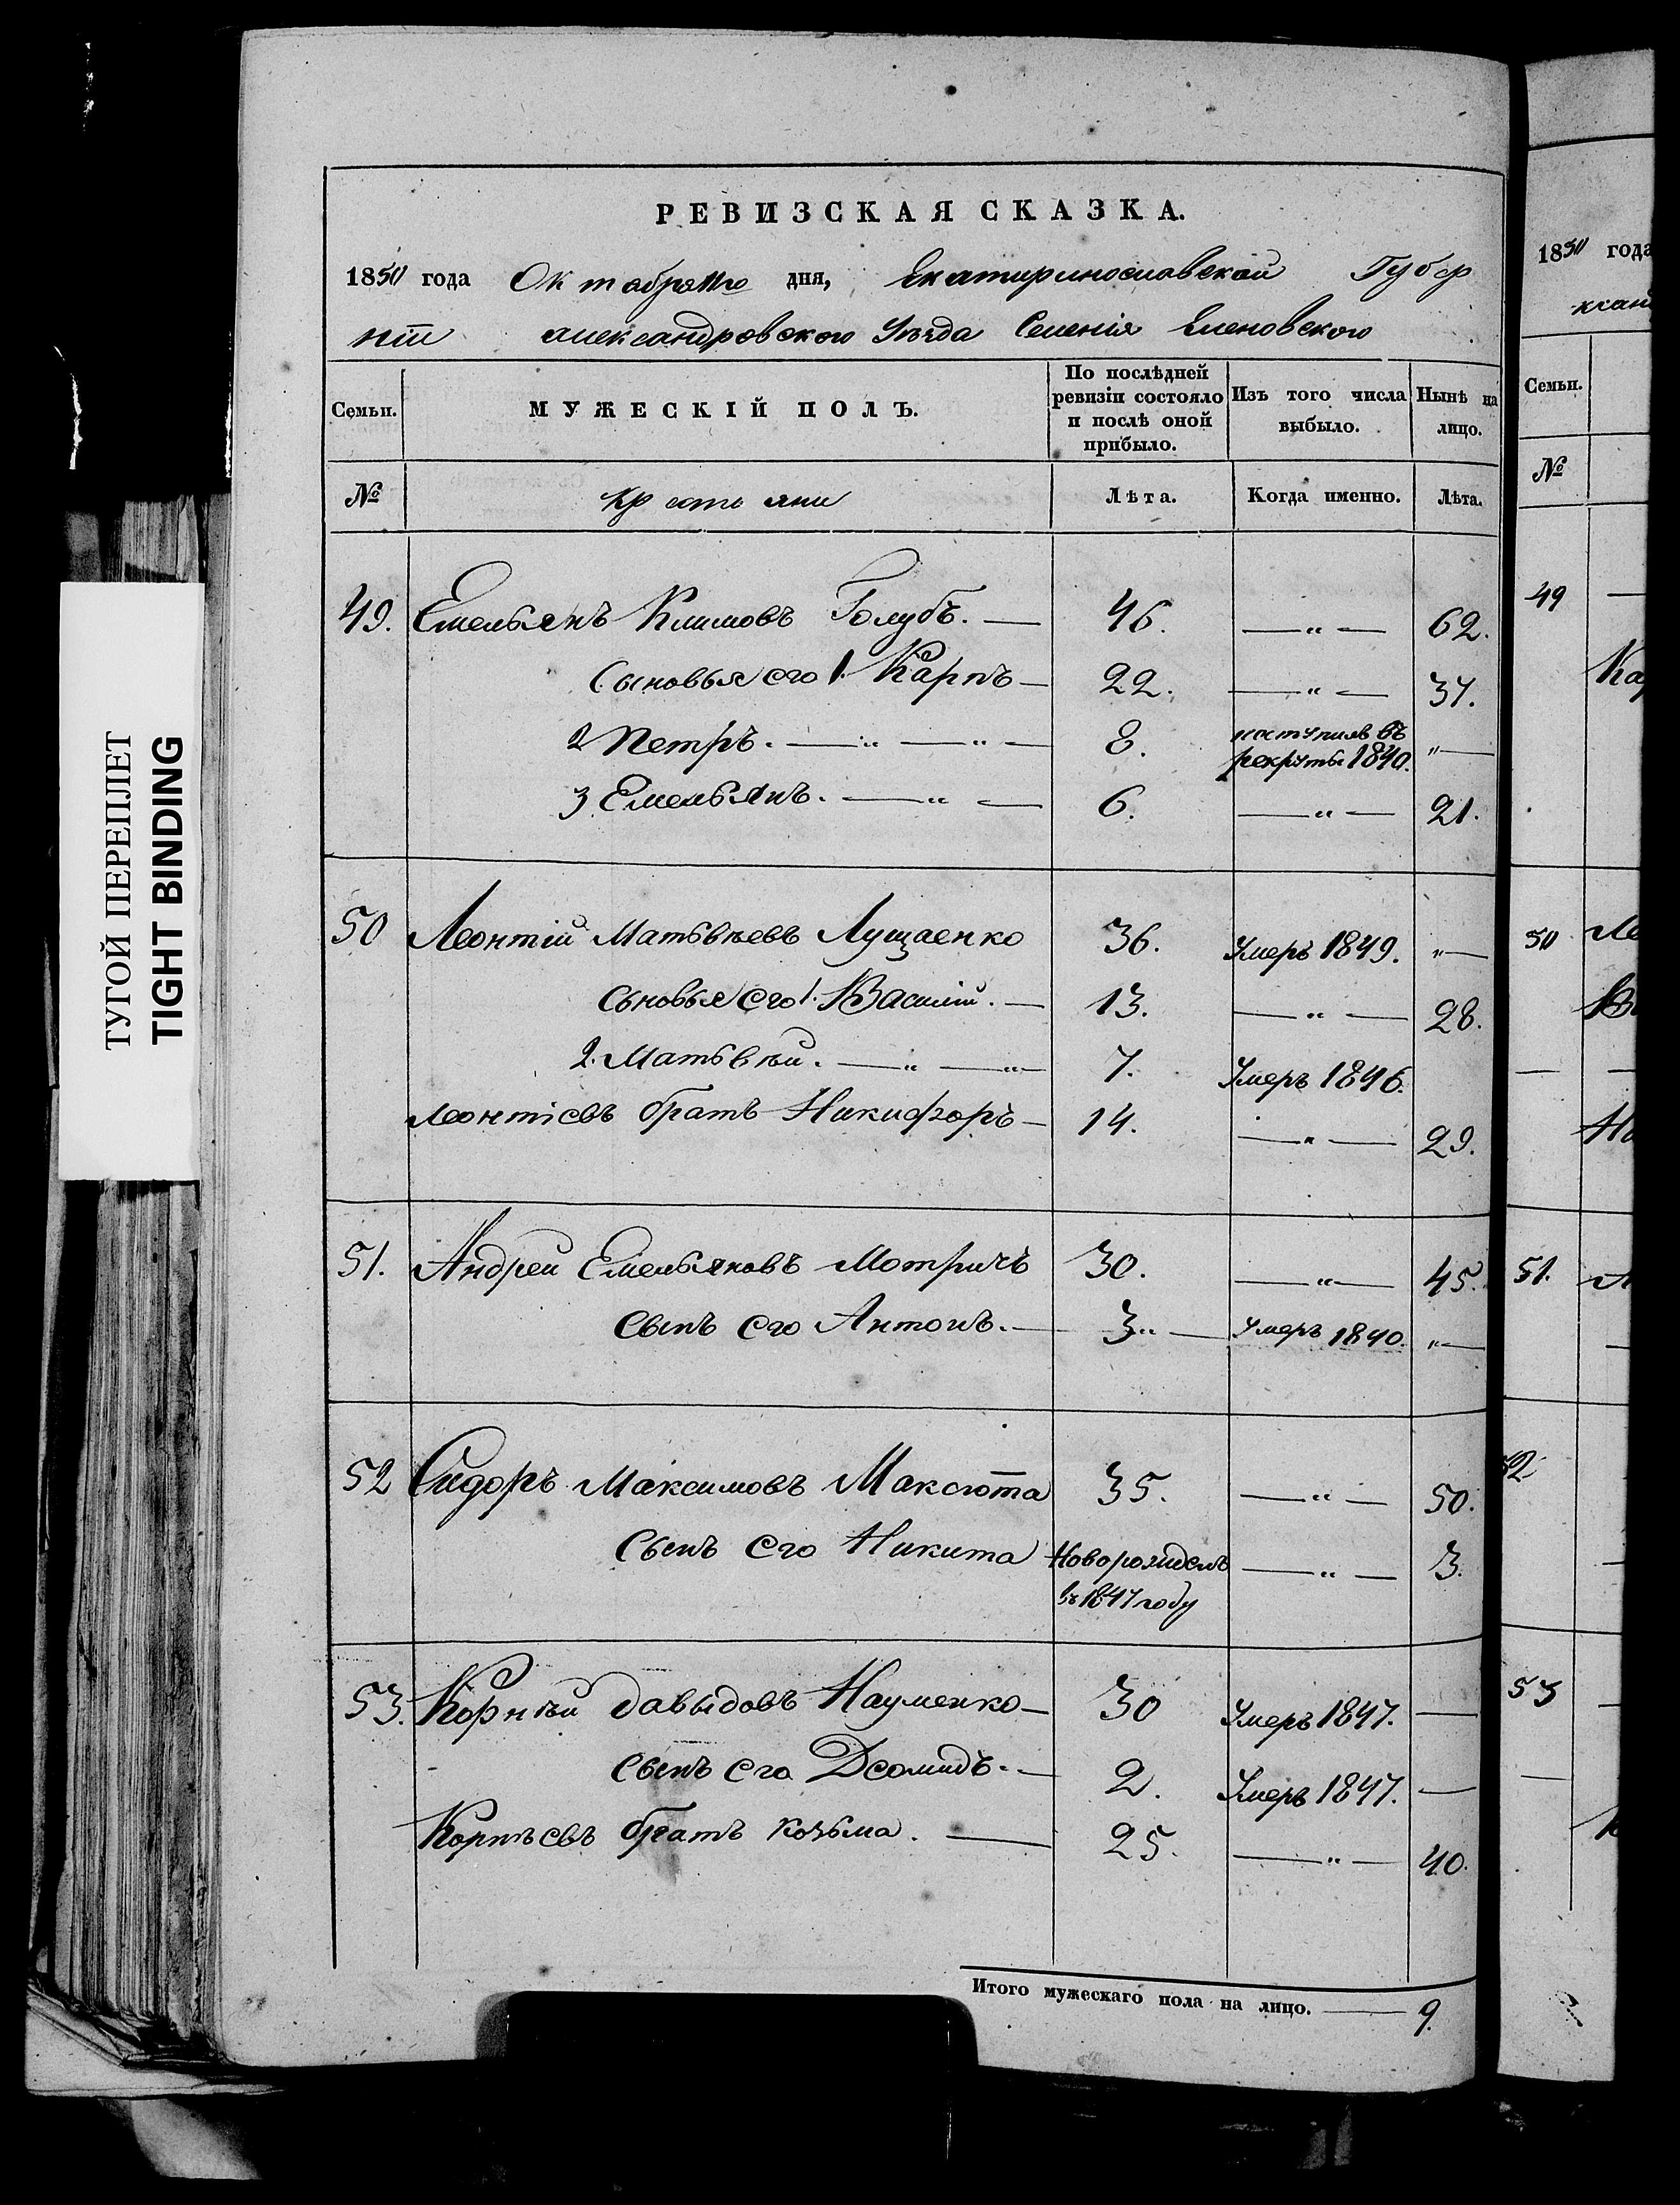 ТУГОЙ ПЕРЕПЛЕТ
TIGHT BINDING
РЕВИЗСКАЯ СКАЗКА.
1850 года Октября дня, Екатеринославской Губер
ніи александровского Уезда Селенія Еленовского
Семьи. МУЖЕСКІЙ ПОЛЪ. По послѣдней ревизіи состояло и послѣ оной прибыло. Изъ того числа выбыло. Нынѣ на лицо.
№ Крестьяни Лѣта. Когда именно. Лѣта.
49. Емельянъ Климовъ Голубъ. — 46. —"— 62.
Сыновья его 1. Карпъ — 22. —"— 37.
2 Петръ. —"—"— 8. поступилъ въ рекруты 1840. "—
3. Емельянъ. —"— 6. —"— 21.
50 Леонтій Матвѣевъ Лущаенко 36. Умеръ 1849. "—
Сыновья его 1. Василій. — 13. —"— 28.
2. Матвѣй. —"—"— 7. Умеръ 1846.
Леонтіевъ братъ Никифоръ — 14. —"— 29.
51. Андрей Емельяновъ Мотричъ 30. —"— 45.
Сынъ его Антонъ. — 3" — умеръ 1840. "—
52 Сидоръ Максимовъ Максюта 35. —"— 50.
Сынъ его Никита Новорожденъ —"— 3.
въ 1847 году
53. Корнѣй давыдовъ Науменко — 30 Умеръ 1847. —
Сынъ его Деомидъ. — 2. Умеръ 1847. —
Корнѣевъ братъ козьма. — 25. —"— 40.
Итого мужескаго пола на лицо. — 9.
1850 года
Семьи.
№
49
Ка
50 Ле
51.
52
53